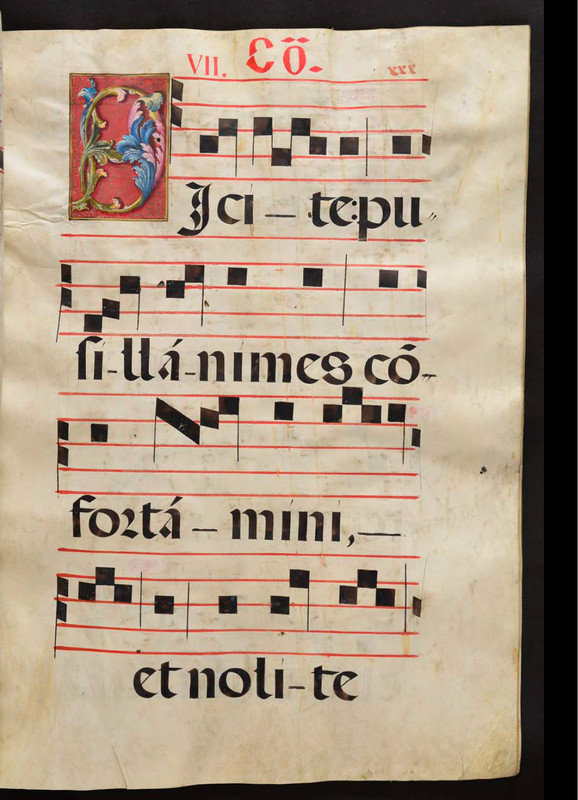 VII. Cō. xxx
DJci – te: pu„
si-llá-nimes cō-
fortá – mini, –
et noli-te